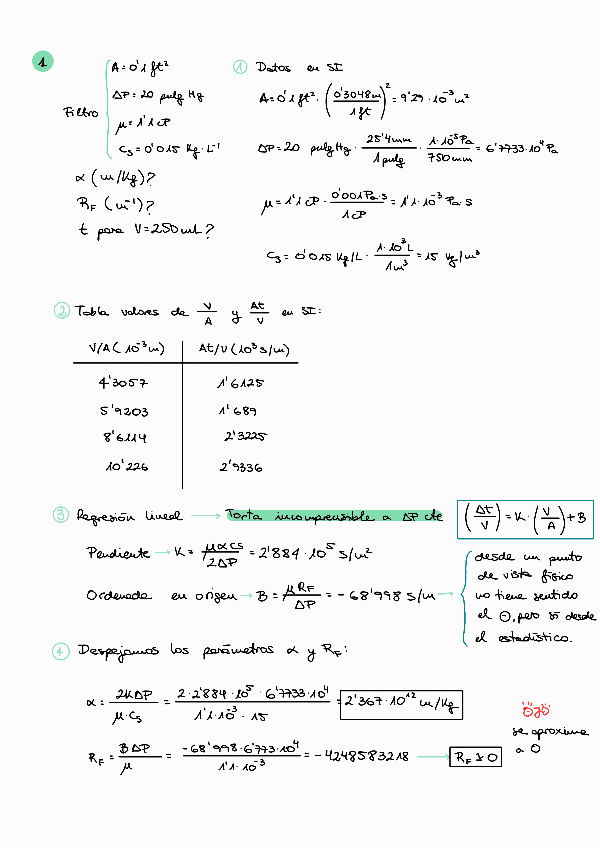 1
Filtro
A = 0'1 ft²
ΔP = 20 pulg Hg
μ = 1'1 cP
Cs = 0'015 Kg · L⁻¹
α (m/Kg)?
RF (m⁻¹)?
t para V = 250 mL?
① Datos en SI
A = 0'1 ft² · (0'3048 m / 1 ft)² = 9'29 · 10⁻³ m²
ΔP = 20 pulg Hg · 25'4 mm / 1 pulg · 1 · 10⁵ Pa / 750 mm = 6'7733 · 10⁴ Pa
μ = 1'1 cP · 0'001 Pa · s / 1 cP = 1'1 · 10⁻³ Pa · s
Cs = 0'015 Kg/L · 1 · 10³ L / 1 m³ = 15 Kg/m³
② Tabla valores de V/A y At/V en SI:
V/A (10⁻³ m) At/V (10³ s/m)
4'3057 1'6125
5'9203 1'689
8'6114 2'3225
10'226 2'9336
③ Regresión lineal → Torta incompresible a ΔP cte
(Δt/V) = K · (V/A) + B
Pendiente → K = μαCs / 2ΔP = 2'884 · 10⁵ s/m²
Ordenada en origen → B = μRF / ΔP = -68'998 s/m →
desde un punto
de vista físico
no tiene sentido
el ⊖, pero sí desde
el estadístico.
④ Despejamos los parámetros α y RF:
α = 2KΔP / μ · Cs = 2 · 2'884 · 10⁵ · 6'7733 · 10⁴ / 1'1 · 10⁻³ · 15 = 2'367 · 10¹² m/Kg
RF = BΔP / μ = -68'998 · 6'773 · 10⁴ / 1'1 · 10⁻³ = -4248583218 → RF ≈ 0
OJO
se aproxima
a 0